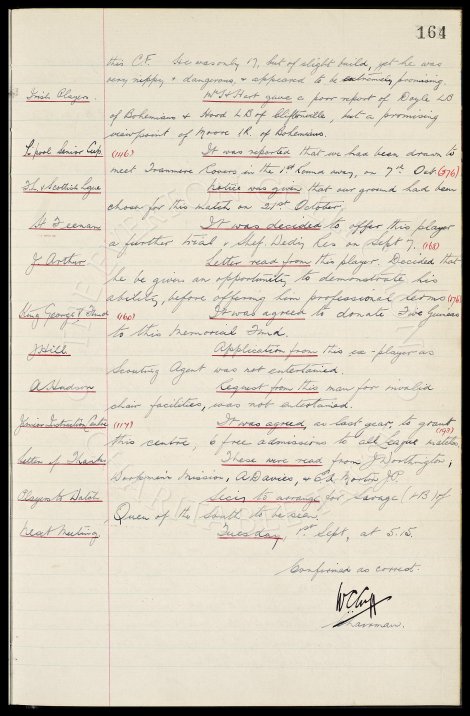 164
this C.F. He was only 17, but of slight build, yet he was
very nippy & dangerous, & appeared to be extremely promising
Irish Players Mr Hart gave a poor report of Doyle LB
of Bohemians & Hood LB of Cliftonville, but a promising
viewpoint of Moore IR. of Bohemians.
L'pool Senior Cup (146) It was reported that we had been drawn to
meet Tranmere Rovers in the 1st Round away, on 7th Oct (276)
F.L. v Scottish Lgue Notice was given that our ground had been
chosen for this match on 21st October.
W Feenan It was decided to offer this player
a further trial v Shef. Weds. Res on Sept 7. (168)
J. Arthur Letter read from this player. Decided that
he be given an opportunity to demonstrate his
ability, before offering him professional terms (176)
King George V Fund (160) It was agreed to donate Five Guineas
to this Memorial Fund.
J Hill Application from this ex-player as
Scouting Agent was not entertained.
A Hudson Request from this man for invalid
chair facilities, was not entertained.
Junior Instruction Centre (117) It was agreed, as last year, to grant
this centre, 6 free admissions to all league matches, (192)
Letters of Thanks These were read from J Worthington,
Mission, A Davies, & Ed Morton J.P.
Players to Watch Secy to arrange for Savage (HB) of
Queen of the South to be seen.
Next Meeting Tuesday 1st Sept, at 5.15.
Confirmed as correct.
W C Cuff
Chairman.